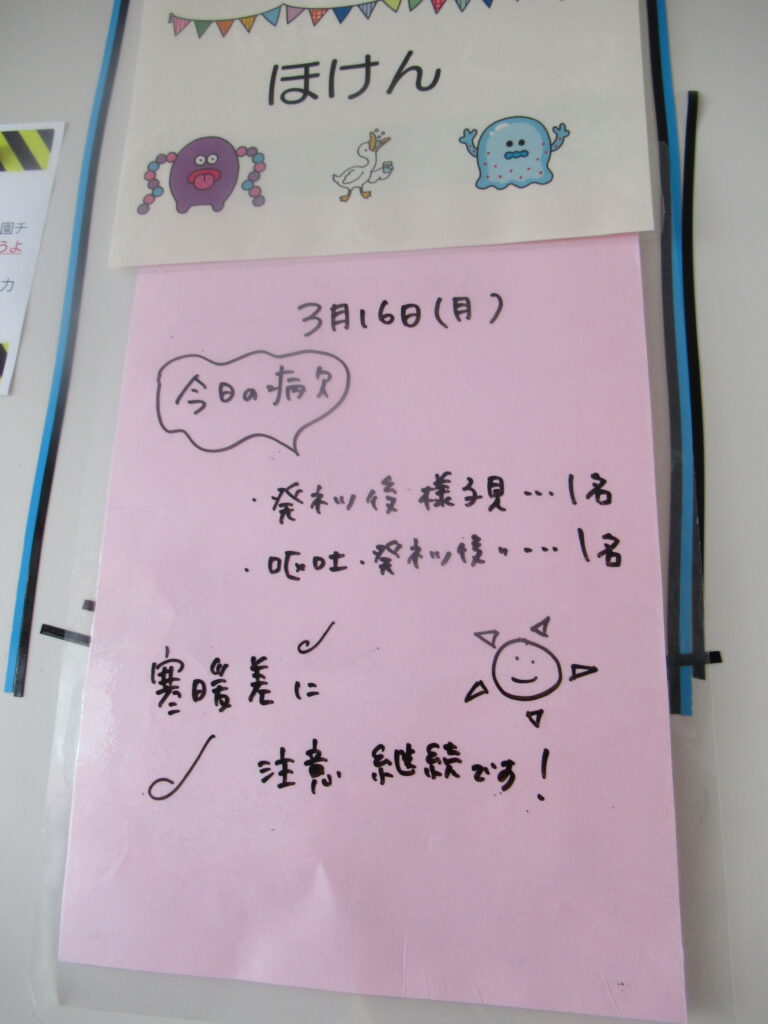 ほけん
園チ
うよ
力
3月16日(月)
今日の病欠
・発ネツ後 様子見…1名
・呕吐・発ネツ後〃…1名
寒暖差に
注意 継続です!